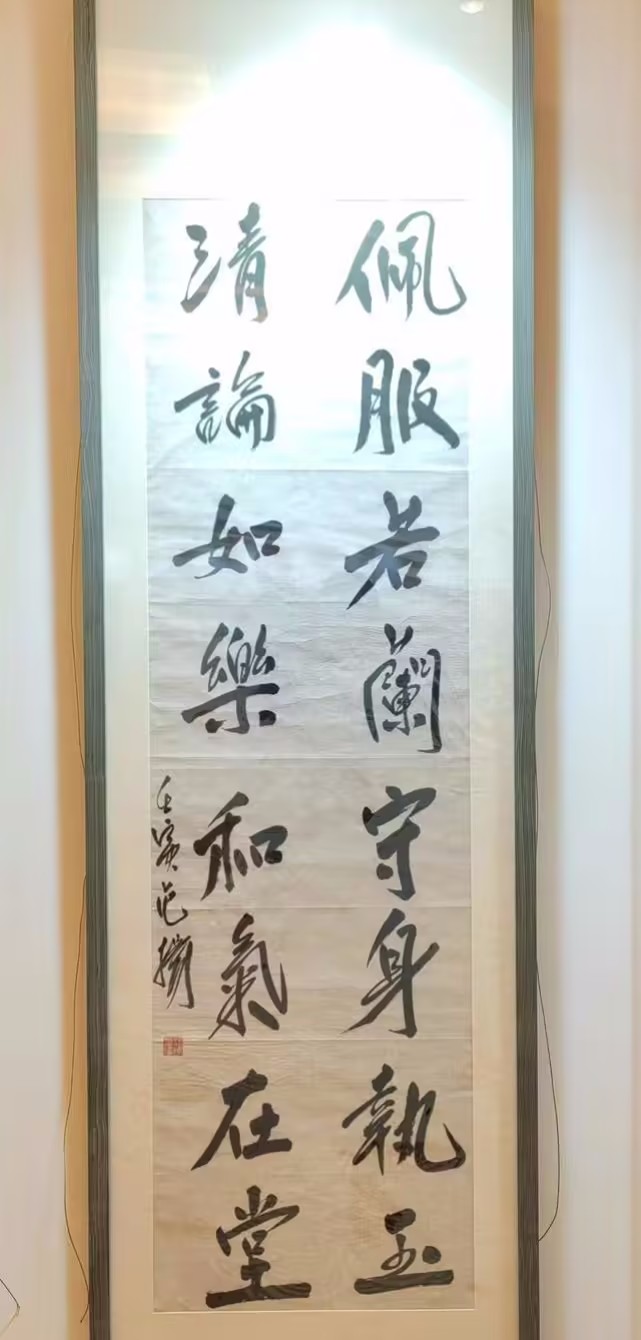 佩服若蘭守身執玉
清論如樂和氣在堂
壬寅